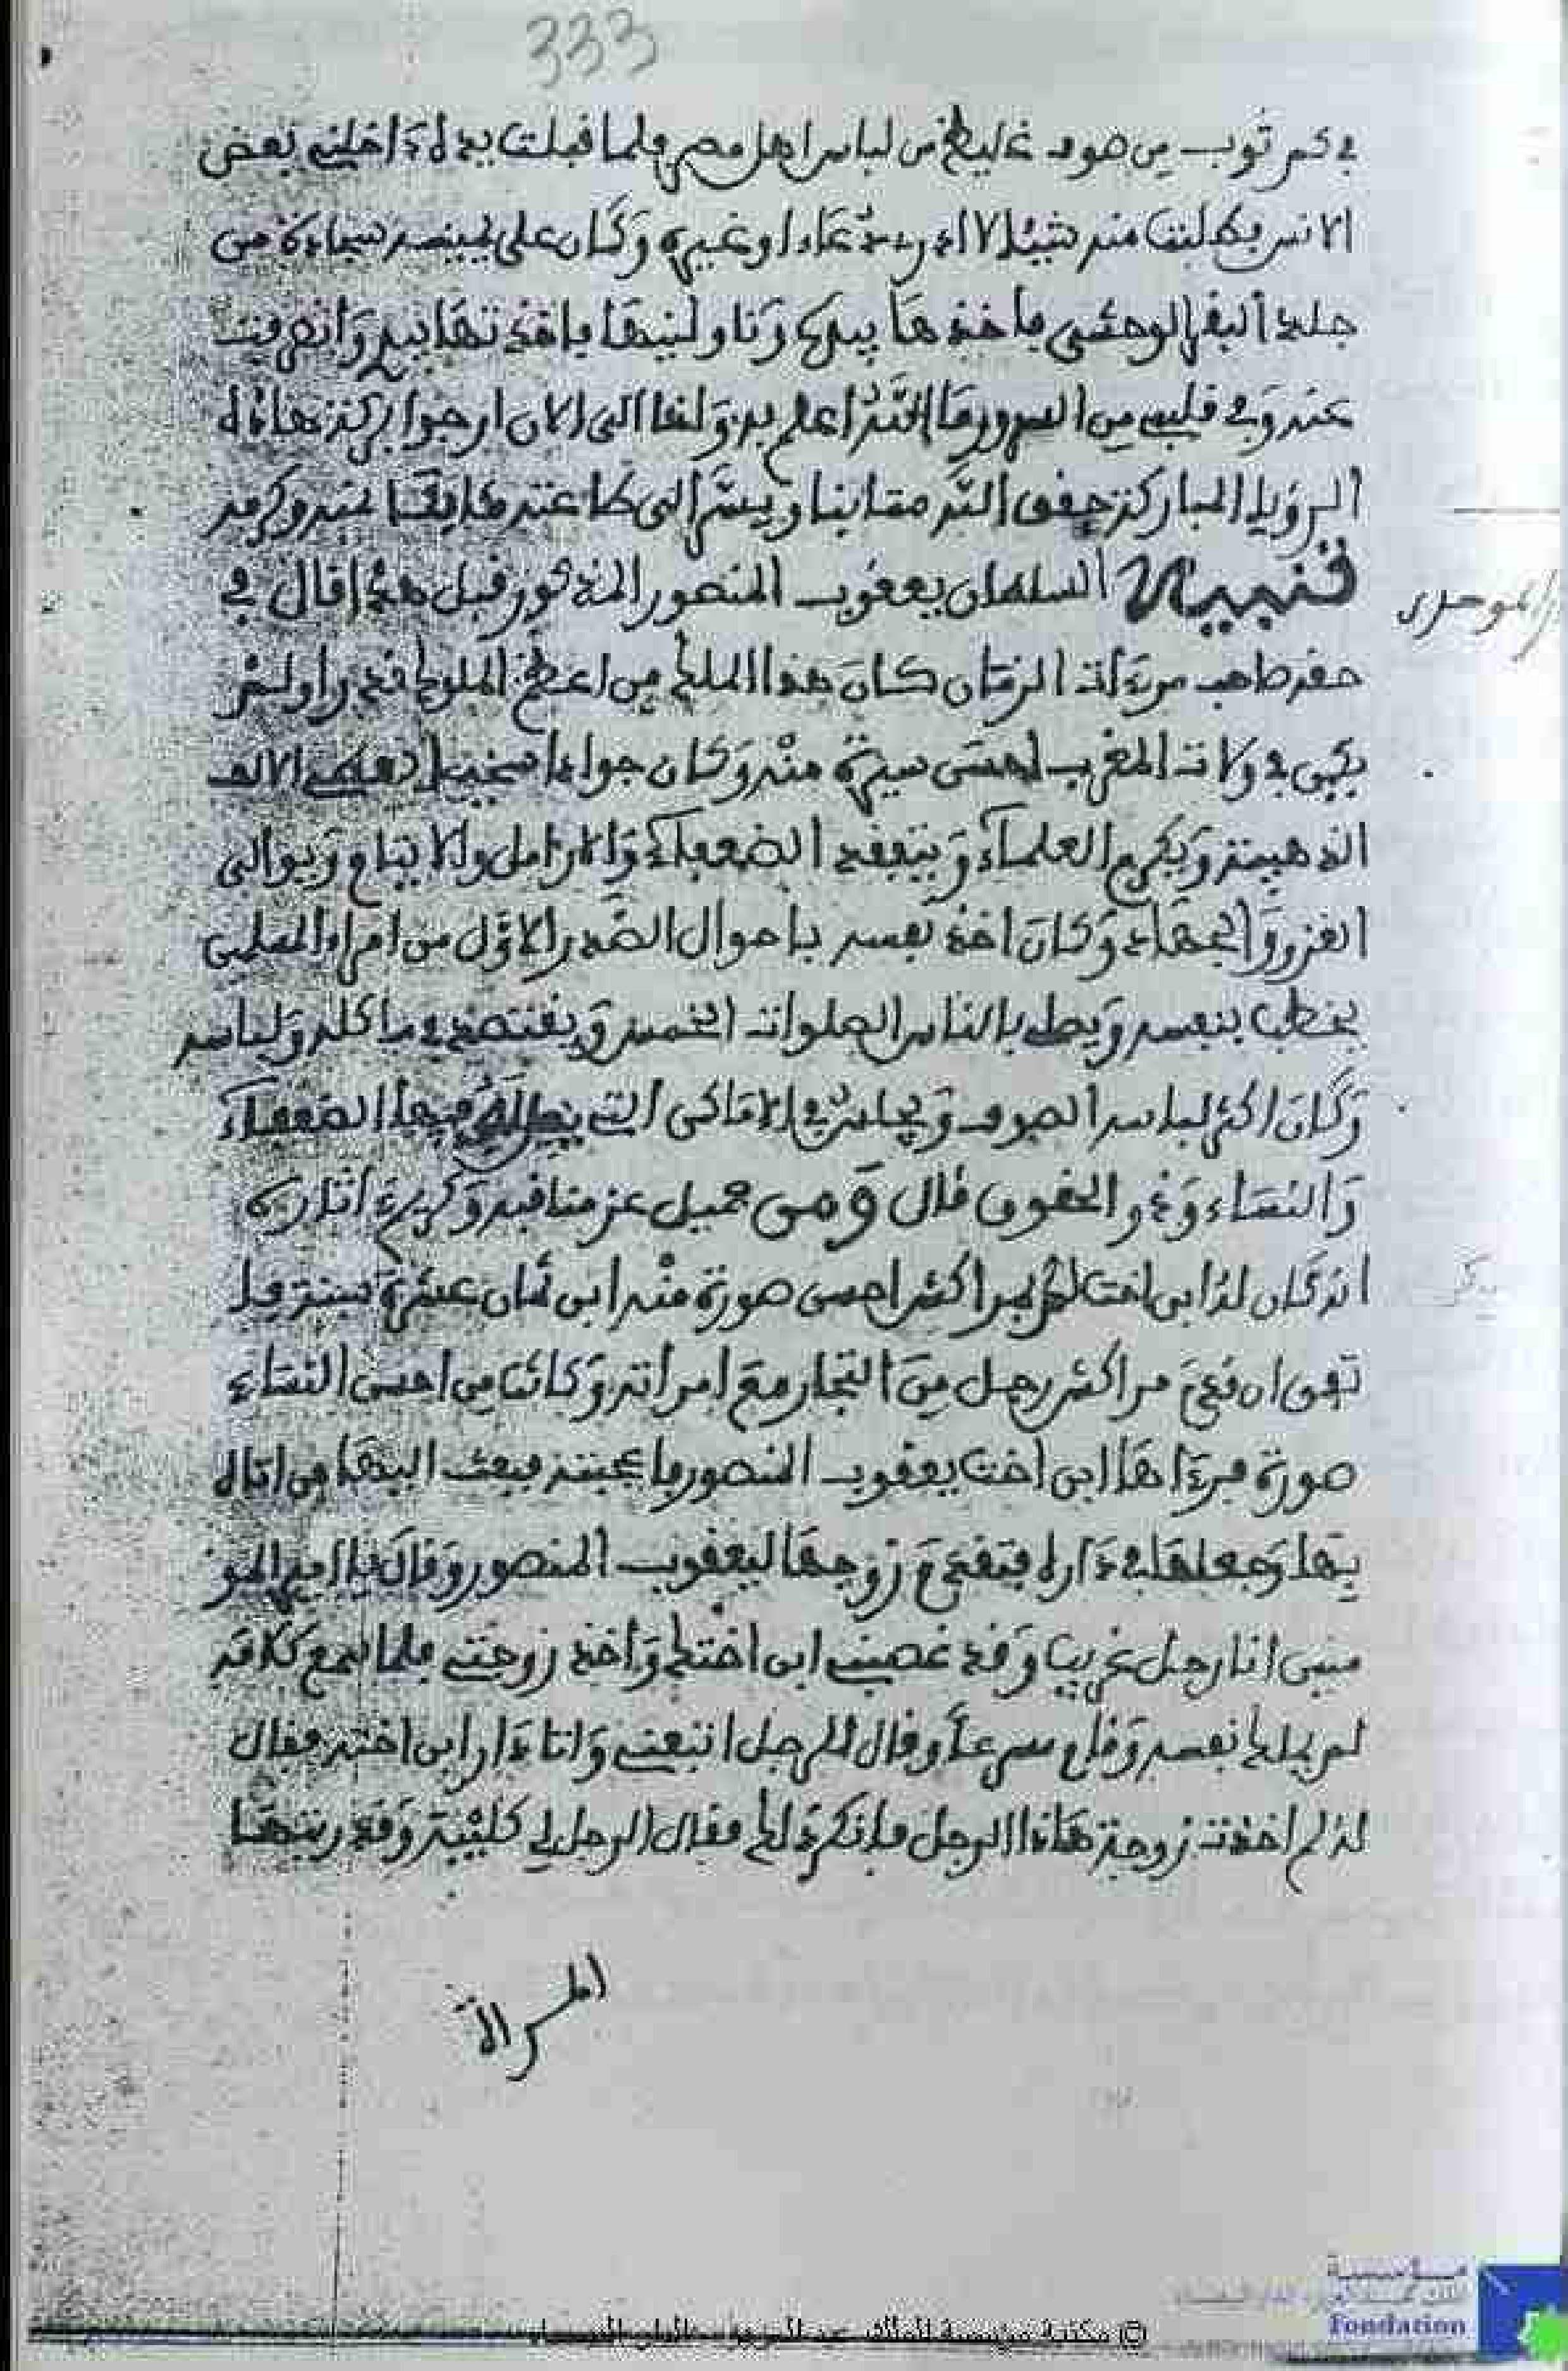 333
في كم ثوب من صوف غليظ من لباس اهل مصر فلما قبلت يده داخلني بعض
الانس فطلبت منه شيئا لا ادري دعاء او غيره وكان على يمينه سجادة من
جلد البقر الوحشي فأخذها بيده وناولنيها فاخذتها بيدي وانصرفت
عنه وفي قلبي من السرور ما الله اعلم به وانا الى الان ارجوا بركة هاذه
الرؤيا المباركة حقق الله متابنا ويسر الى طاعته بمنه وكرمه
تنبيه السلطان يعقوب المنصور المذكور قبل هذا قال في
حقه صاحب مرءاة الزمان كان هذا الملك من اعظم الملوك قدرا ولم
يكن في ولاة المغرب احسن سيرة منه وكان جوادا سخيا الالف
الذهبية ويكرم العلماء ويتفقد الضعفاء والارامل والايتام ويوالي
الغزو والجهاد وكان اخذ نفسه باحوال الصدر الاول من امراء المسلمين
يخطب بنفسه ويصلي بالناس الصلوات الخمس ويقتصد في ماكله ولباسه
وكان اكثر لباسه الصوف ويجلس في الاماكن التي يصل فيها الضعفاء
والنساء وذو الحقوق قال ومن جميل عز مناقبه وكريم اثاره
انه كان له ابن اخت لم ير اكثر احسن صورة منه ابن ثمان عشرة سنة فا
تفق ان قدم مراكش رجل من التجار مع امراته وكانت من احسن النساء
صورة فرءاها ابن اخت يعقوب المنصور فاعجبته فبعث اليها من اتاه
بها وجعلها في داره فتقدم زوجها ليعقوب المنصور وقال يا امير المو
منين انا رجل غريب وقد غصبني ابن اختك واخذ زوجتي فلما سمع كلامه
لم يملك نفسه وقام مسرعا وقال للرجل اتبعني واتا دار ابن اخته فقال
له لم اخذت زوجة هاذا الرجل فانكر ذلك فقال الرجل لي كليبة وقد ربتها
المراة
الموحدي
© مكتبة مؤسسة الملك عبد العزيز - الدار البيضاء
مؤسسة
Fondation